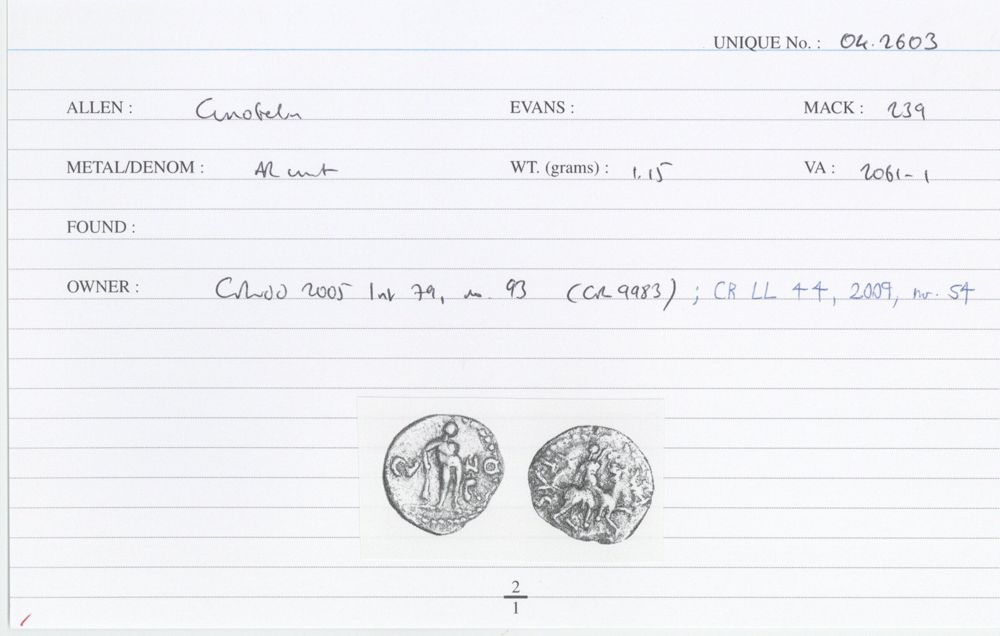 UNIQUE No. : 04.2603
ALLEN : Cunobelin EVANS : MACK : 239
METAL/DENOM : AR unit WT. (grams) : 1.15 VA : 2061-1
FOUND :
OWNER : 2005 79, no. 93 (CR 9983) ; CR LL 44, 2009, nr. 54
2
1